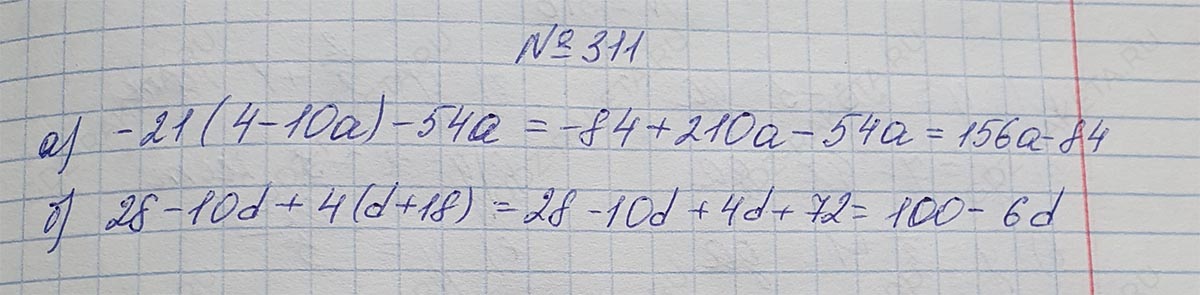 № 311
а) -21(4-10a)-54a = -84+210a-54a = 156a-84
б) 28-10d+4(d+18) = 28-10d+4d+72= 100-6d